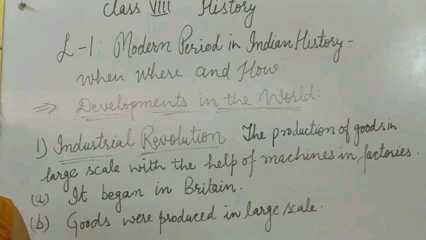 Class VIII History
L-1: Modern Period in Indian History -
When Where and How
⇒ Developments in the World:
1) Industrial Revolution. The production of goods in
large scale with the help of machines in factories.
(a) It began in Britain.
(b) Goods were produced in large scale.